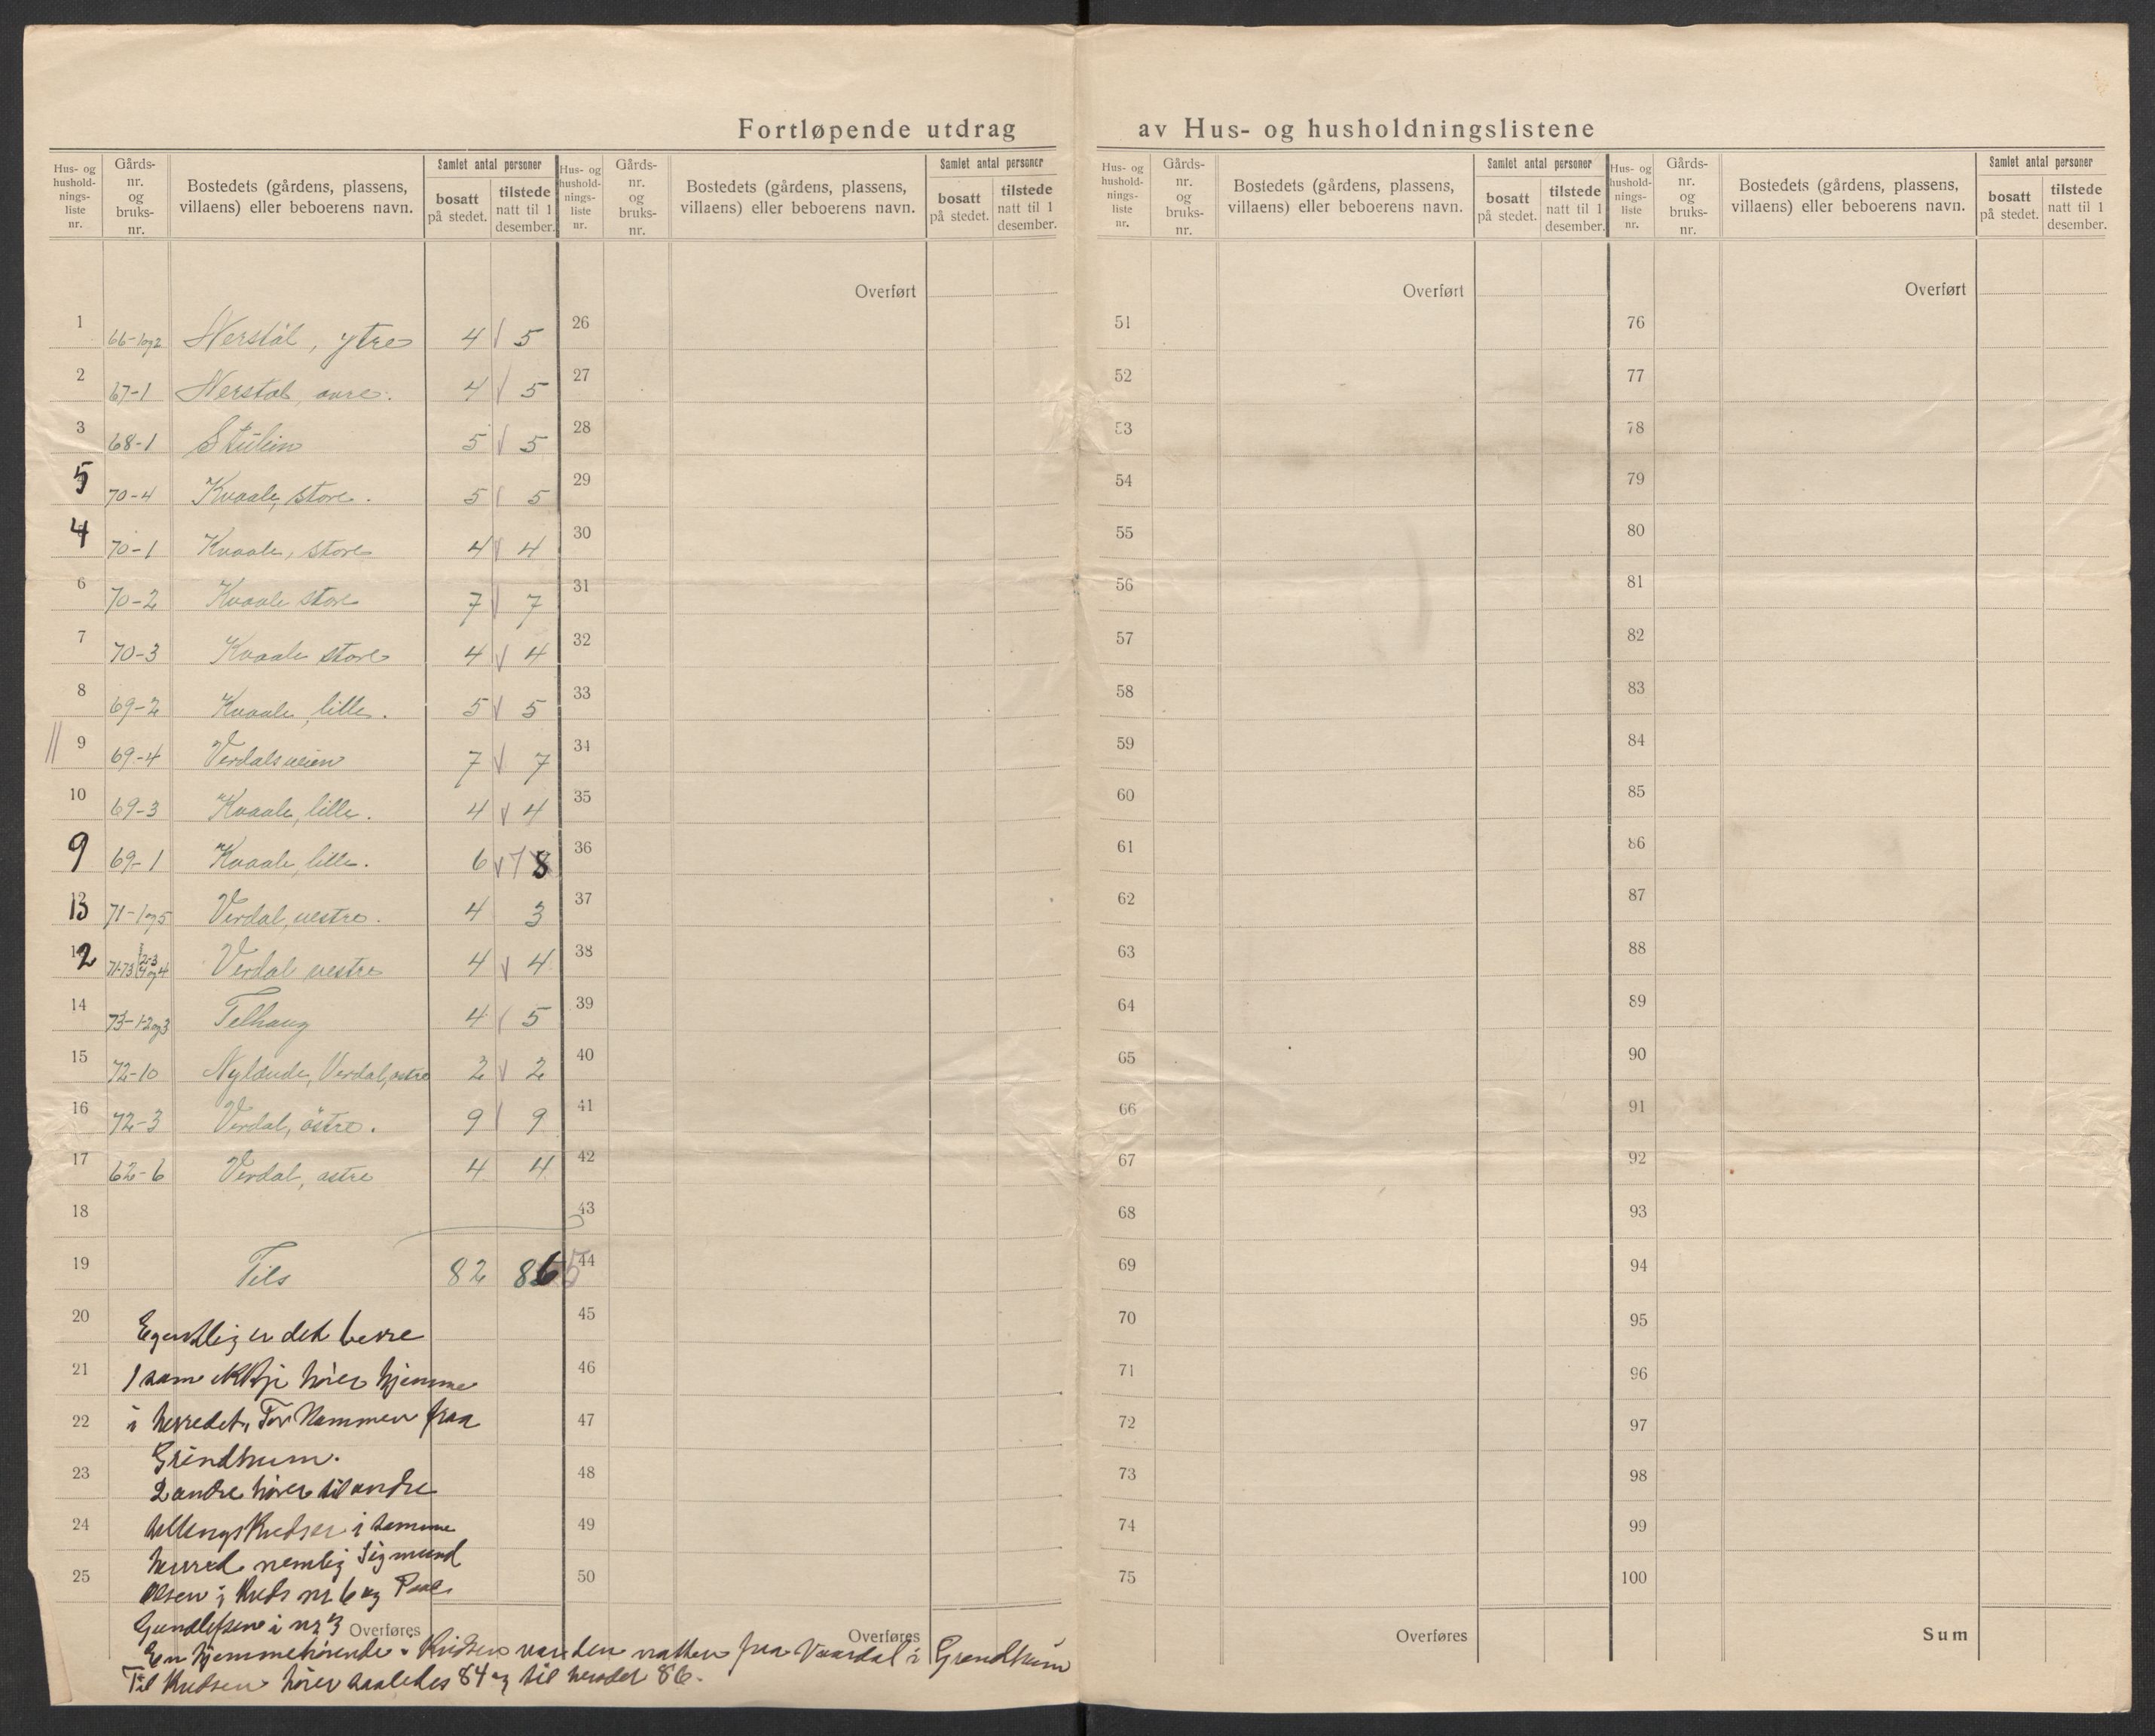 Fortløpende utdrag av Hus- og husholdningslistene
Hus- og hushold-nings-liste nr. Gårds-nr. og bruks-nr. Bostedets (gårdens, plassens, villaens) eller beboerens navn. Samlet antal personer bosatt på stedet. tilstede natt til 1 desember.
Hus- og hushold-nings-liste nr. Gårds-nr. og bruks-nr. Bostedets (gårdens, plassens, villaens) eller beboerens navn. Samlet antal personer bosatt på stedet. tilstede natt til 1 desember.
Hus- og hushold-nings-liste nr. Gårds-nr. og bruks-nr. Bostedets (gårdens, plassens, villaens) eller beboerens navn. Samlet antal personer bosatt på stedet. tilstede natt til 1 desember.
Hus- og hushold-nings-liste nr. Gårds-nr. og bruks-nr. Bostedets (gårdens, plassens, villaens) eller beboerens navn. Samlet antal personer bosatt på stedet. tilstede natt til 1 desember.
Overført Overført Overført
1 66-1og2 Nerstøl, ytre 4 5 26 51 76
2 67-1 Nerstøl, 4 5 27 52 77
3 68-1 5 5 28 53 78
5 70-4 Kvaale, store. 5 5 29 54 79
4 70-1 Kvaale, store 4 4 30 55 80
6 70-2 Kvaale store 7 7 31 56 81
7 70-3 Kvaale store 4 4 32 57 82
8 69-2 Kvaale, lille. 5 5 33 58 83
11 9 69-4 Verdalsveien 7 7 34 59 84
10 69-3 Kvaale, lille. 4 4 35 60 85
9 69-1 Kvaale, lille. 6 7 8 36 61 86
13 71-1og5 Verdal, vestre. 4 3 37 62 87
12 Verdal vestre 4 4 38 63 88
14 73-1-2og3 Telhaug 4 5 39 64 89
15 72-10 Nylænde, Verdal, østre 2 2 40 65 90
16 72-3 Verdal, östre. 9 9 41 66 91
17 62-6 Verdal, østre 4 4 42 67 92
18 43 68 93
19 Tils 82 86 5 44 69 94
20 45 70 95
Egentlig er det berre
21 46 71 96
1 som ikkje hører hjemme
22 47 72 97
i herredet, Tor Nommen fraa
Grindheim.
23 48 73 98
2 andre hører til andre
24 49 74 99
tellingskredser i samme
herred nemlig Sigmund
25 50 75 100
Olsen i kreds nr. 6 og Paal
Gundlefsen i nr 3
Overføres Overføres Overføres Sum
En hjemmehørende i kredsen var den natten fraa Vaardal i Grendheim
Til kredsen hører saaledes 84 og til herredet 86.